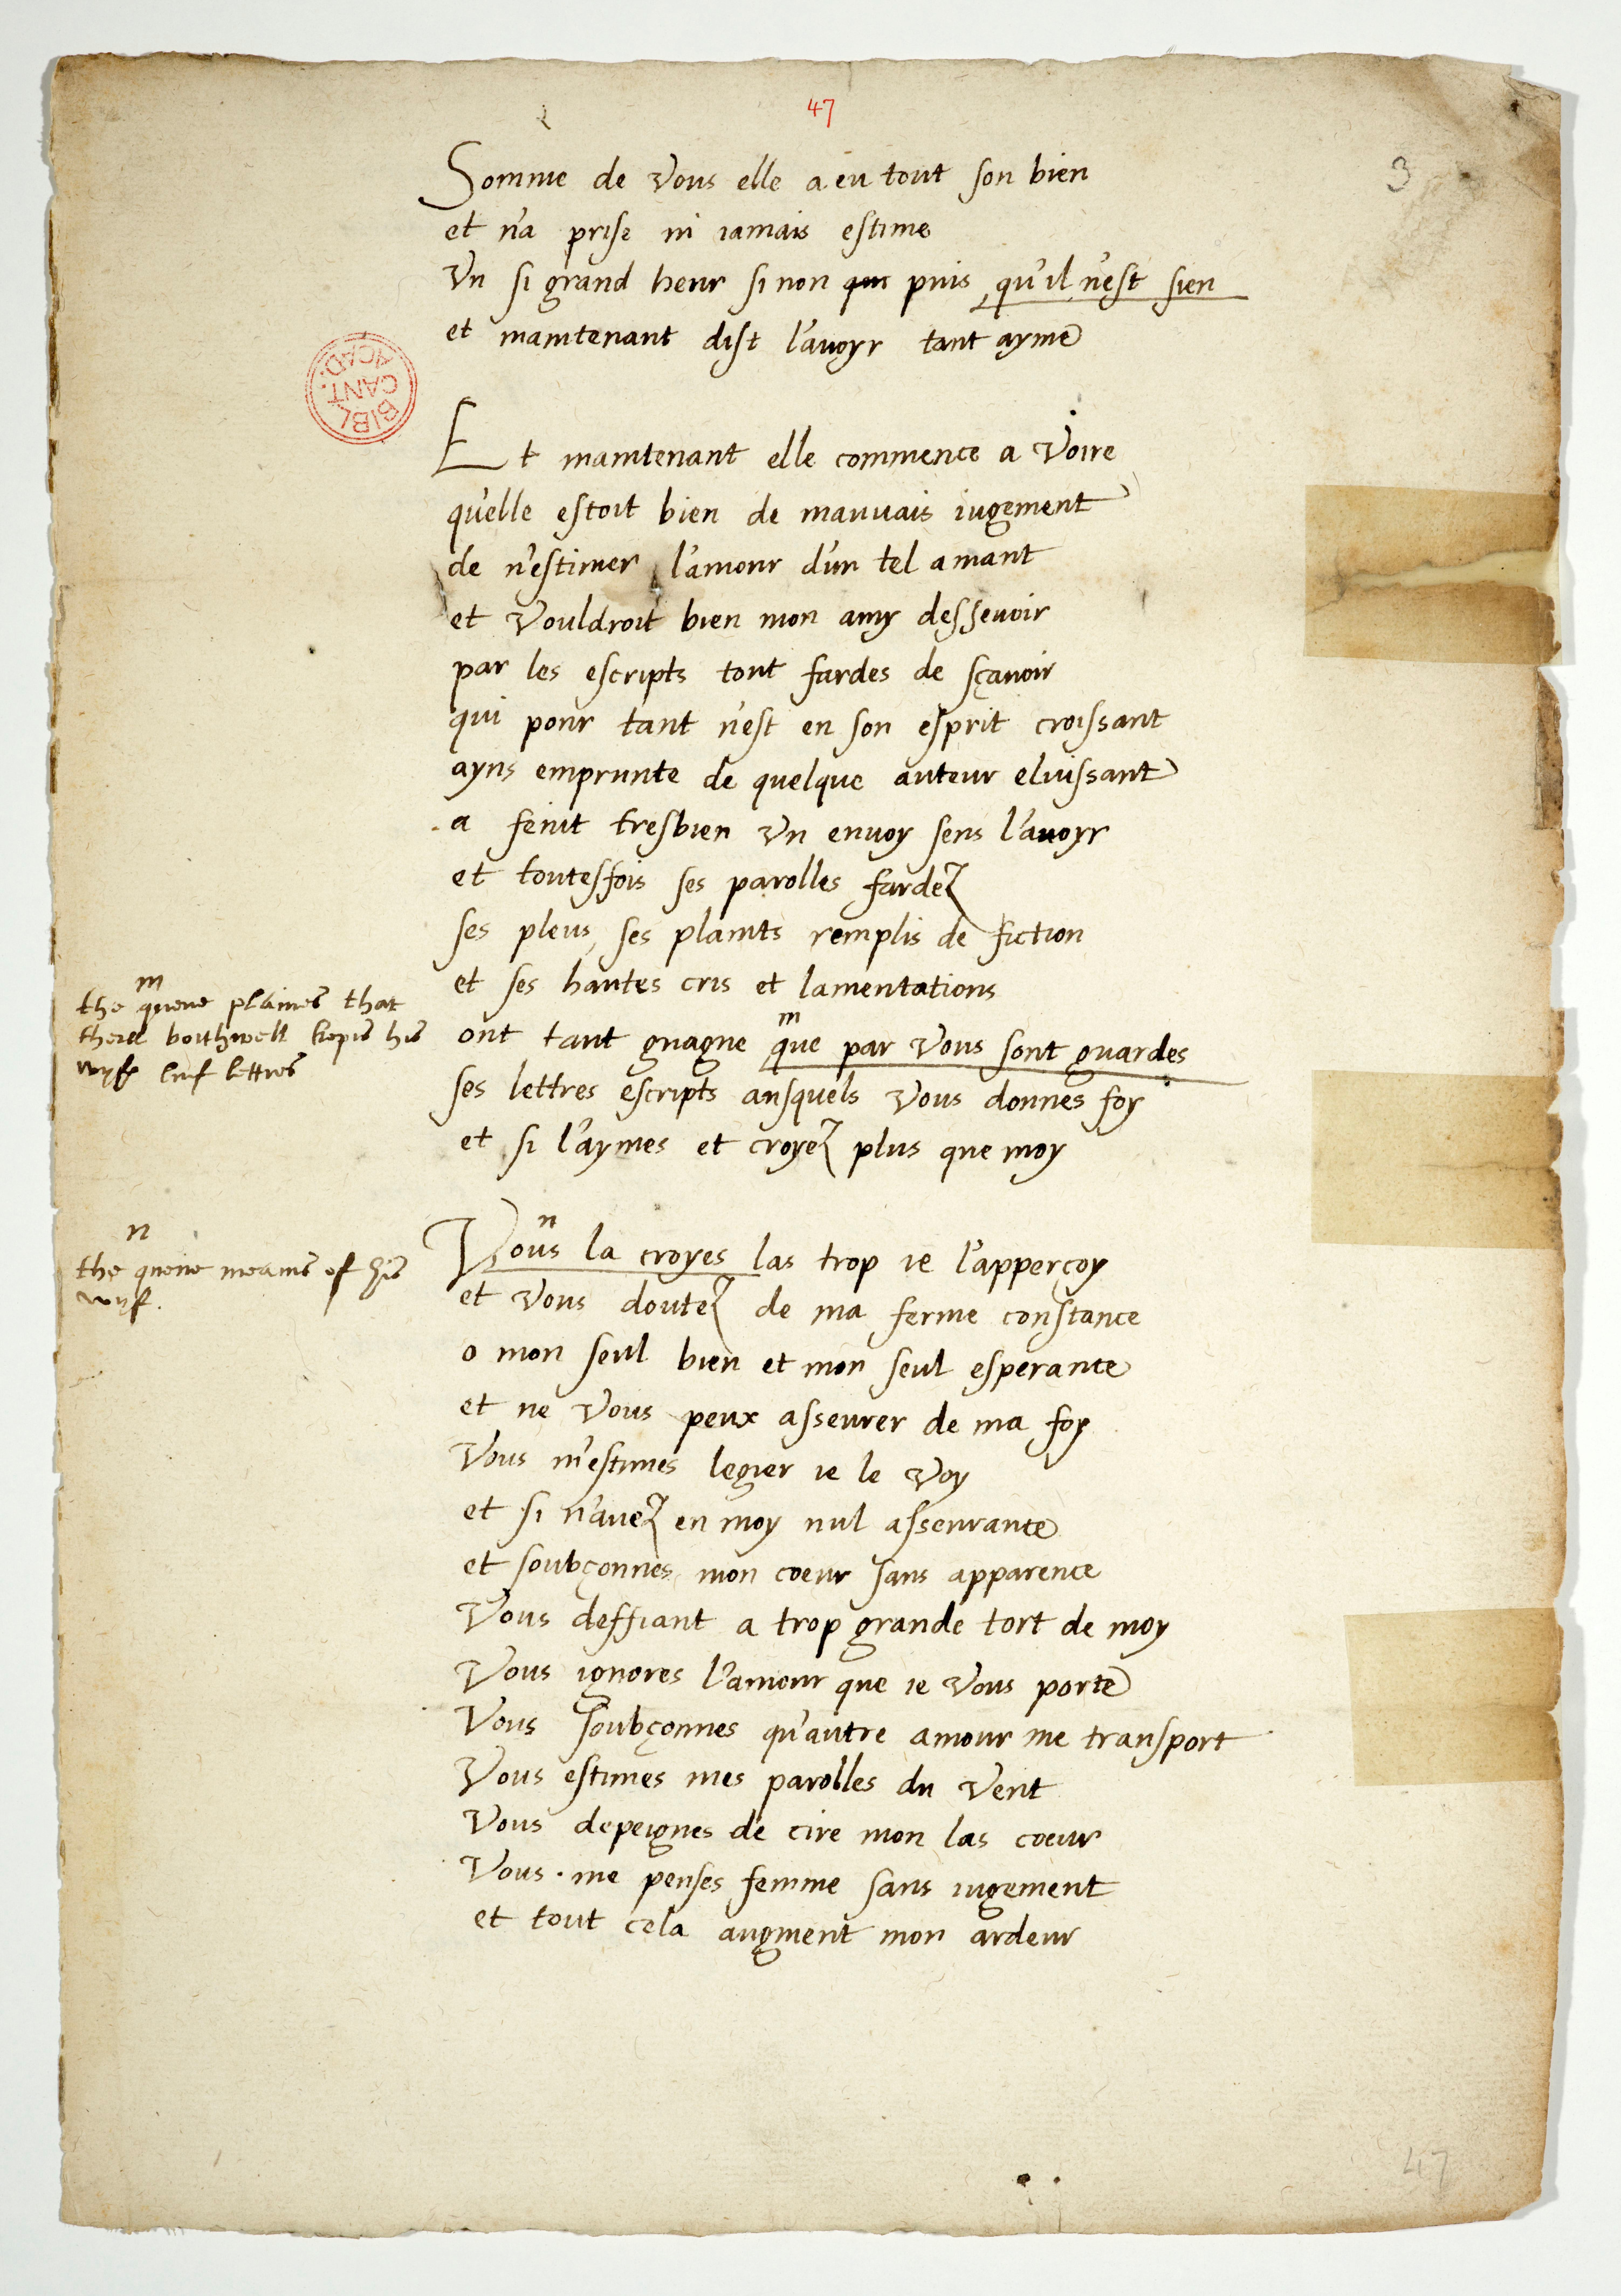 47
3
Somme de vous elle a eu tout son bien
et n'a prise ni iamais estime
Vn si grand heur si non qu puis qu'il n'est sien
et maintenant dist l'auoyr tant ayme
BIBL. CANT. ACAD.
Et maintenant elle commence a voire
qu'elle estoit bien de mauuais iugement
de n'estimer l'amour d'un tel amant
et vouldroit bien mon amy dessevoir
par les escripts tout fardes de sçauoir
qui pour tant n'est en son esprit croissant
ayns emprunte de quelque auteur eluissant
a feint tresbien vn enuoy sens l'auoyr
et toutesfois ses parolles fardez
ses pleus, ses plaints remplis de fiction
et ses hautes cris et lamentations
m
ont tant guagne que par vous sont guardes
ses lettres escripts ausquels vous donnes foy
et si l'aymes et croyez plus que moy
m
the quene plaines that
therll boithwell kepis his
wyfs luif lettres
n
Vous la croyes las trop ie l'apperçoy
et vous doutez de ma ferme constance
o mon seul bien et mon seul esperance
et ne vous peux asseurer de ma foy
Vous m'estimes legier ie le voy
et si n'auez en moy nul asseurance
et soubçonnes mon coeur sans apparence
Vous deffiant a trop grande tort de moy
Vous ignores l'amour que ie vous porte
Vous soubçonnes qu'autre amour me transport
Vous estimes mes parolles du vent
Vous depeignes de cire mon las coeur
Vous me penses femme sans iugement
et tout cela augment mon ardeur
n
the quene meanis of his
wyf.
47